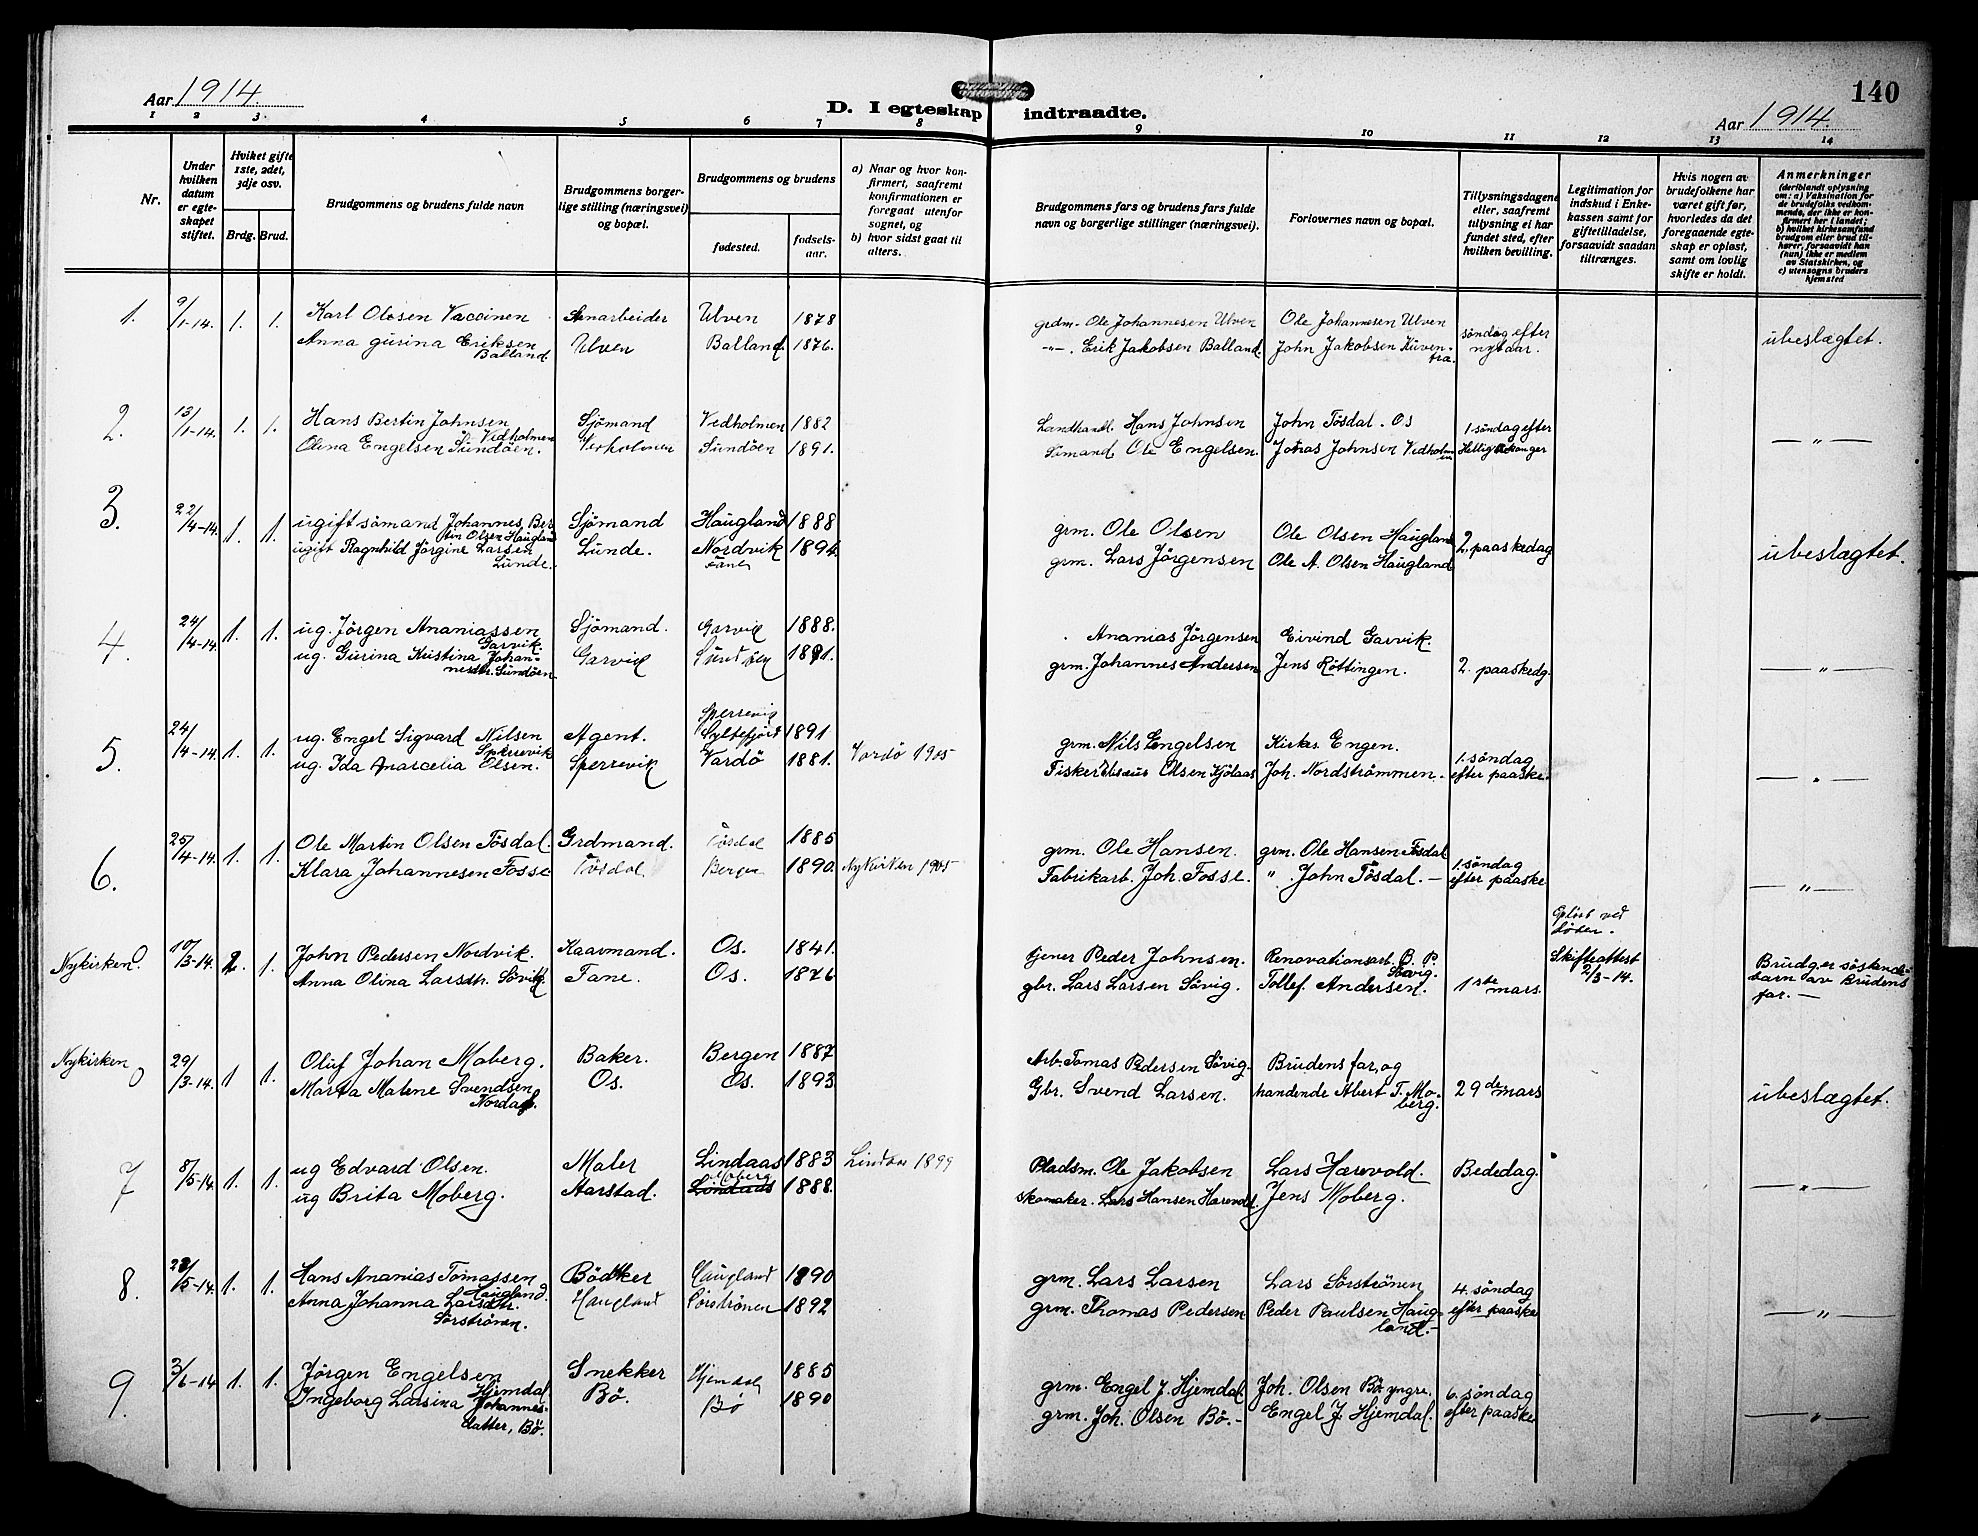 Aar 1914.
D. I egteskap indtraadte.
140
Aar 1914.
1 2 3 4 5 6 7 8 9 10 11 12 13 14
Nr.
Under hvilken datum er egteskapet stiftet.
Hviket gifte 1ste, 2det, 3dje osv.
Brdg. Brud.
Brudgommens og brudens fulde navn
Brudgommens borgerlige stilling (næringsvei) og bopæl.
Brudgommens og brudens
fødested.
fødselsaar.
a) Naar og hvor konfirmert, saafremt konfirmationen er foregaat utenfor sognet, og
b) hvor sidst gaat til alters.
Brudgommens fars og brudens fars fulde navn og borgerlige stillinger (næringsvei).
Forlovernes navn og bopæl.
Tillysningsdagene eller, saafremt tillysning ei har fundet sted, efter hvilken bevilling.
Legitimation for indskud i Enkekassen samt for giftetilladelse, forsaavidt saadan tiltrænges.
Hvis nogen av brudefolkene har været gift før, hvorledes da det foregaaende egteskap er opløst, samt om lovlig skifte er holdt.
Anmerkninger
(deriblandt oplysning om: a) Vaksination for de brudefolks vedkommende, der ikke er konfirmert her i landet; b) hvilket kirkesamfund brudgom eller brud tilhører, forsaavidt han (hun) ikke er medlem av Statskirken, og c) utensogns bruders hjemsted
1. 9/1-14. 1. 1. Karl Olesen Ulven 1878 grdm. Ole Johannesen Ulven Ole Johannesen Ulven søndag efter
Anna Gurina Eriksen Balland Ulven Balland. 1876. -"-. Erik Jakobsen Balland. John Jakobsen nytaar. ubeslægtet.
2. 13/1-14. 1. 1. Hans Bertin Johnsen Vedholmen Sjömand Vedholmen 1882 Landhandl. Hans Johnsen John Tösdal. Os 1. søndag efter
Olina Engelsen Sundöen. Sundöen 1891. Ole Engelsen. Johnsen Vedholmen -"-
3. 22/4-14. 1. 1. ugift sömand Johannes Bertin Olsen Haugland Sjömand Haugland 1888 grm. Ole Olsen Ole Olsen Haugland 2. paaskedag
ugift Ragnhild Jörgine Larsen Lunde. Lunde. Nordvik 1894. grm. Lars Jörgensen Ole A. Olsen Haugland ubeslagtet.
4. 24/4-14. 1. 1. ug. Jörgen Ananiassen Garvik. Sjömand. Garvik 1888. Ananias Jörgensen Eivind Garvik.
ug. Gurina Kristina Johannesdtr. Sundöen Garvik Sundöen grm. Johannes Andersen Jens Röttingen. 2. paaskedg. -"-
5. 24/4-14. 1. 1. ug. Engel Sigvard Nilsen Sperrevik Agent. Sperrevik Syltefjord 1891 grm. Nils Engelsen Engen. 1. söndag
ug. Ida Marcelia Olsen. Sperrevik Vardö 1881. Vardö 1905 Fisker Olsen Kjölaas Joh. Nordströmmen. efter paaske. -"-
6. 25/4-14. 1. 1. Ole Martin Olsen Tösdal. Grdmand. Tösdal 1885 grm. Ole Hansen. grm. Ole Hansen Tösdal 1. söndag
Klara Johannesen Fosse Tösdal. Bergen 1890. Nykirken 1905 Fabrikarb. Joh. Fosse. " John Tösdal. efter paaske -"-
Nykirken. 10/3-14. 2. 1. John Pedersen Nordvik. Kaarmand. Os. 1841. tjener Peder Johnsen. Renovationsarb. B. P. Sövig. Oplöst ved döden.
Anna Olina Larsdtr. Sövik Fane. Os. 1876 gbr. Lars Larsen Sövig. Tollef Andersen. 1ste mars. Skifteattest 2/3-14. Brudg. er söskendebarn av Brudens far.
Nykirken 29/3-14. 1 1. Oluf Johan Moberg. Baker. Bergen 1887 Arb. Tomas Pedersen Sövig. Brudens far, og
Marta Malene Svendsen Os. Os. 1893 Gbr. Svend Larsen. handende Albert T. Moberg. 29de mars ubeslægtet.
7 8/5-14. 1. 1. ug Edvard Olsen. Maler Lindaas 1883 Lindaas 1899 Pladsm. Ole Jakobsen Lars Hærevold. Bededag.
ug Brita Moberg. Aarstad. Moberg Lindaas 1888. skomaker. Lars Hansen Jens Moberg. -"-
8. 1. 1. Hans Ananias Tomassen Haugland. Bödtker Haugland 1890 grm. Lars Larsen Lars Sörströnen 4. söndag
Anna Johanna Larsdtr. Sörströnen. Haugland Sörströnen 1892 grm. Thomas Pedersen Peder Paulsen Haugland. efter paaske -"-
9. 3/6-14 1. 1. Jörgen Engelsen Hjemdal Snekker Hjemdal 1885 grm. Engel J. Hjemdal. Joh. Olsen Bö yngre. 6. söndag
Ingeborg Larsina Johannesdatter, Bö. Bö. Bö 1890 grm. Joh. Olsen Bö. Engel J. Hjemdal. efter paaske -"-